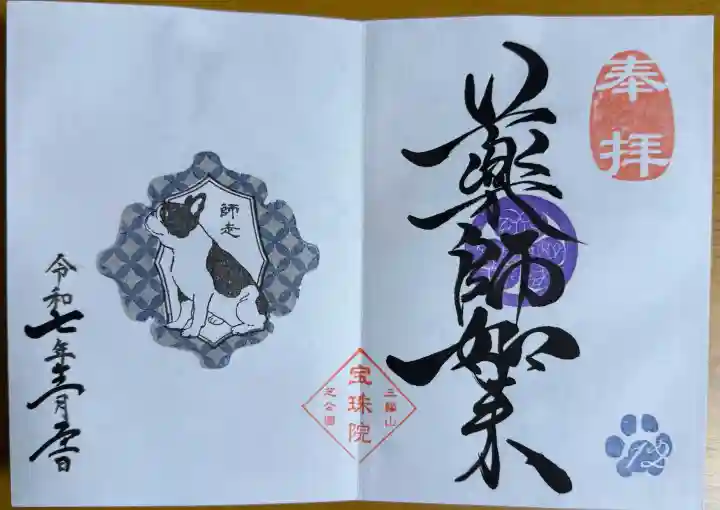 奉拝
薬師如来
三縁山
宝珠院
芝公園
師走
令和七年